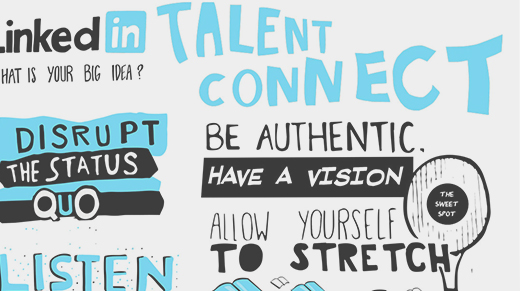 Linked in
TALENT
CONNECT
WHAT IS YOUR BIG IDEA?
DISRUPT
THE STATUS
QUO
BE AUTHENTIC.
HAVE A VISION
THE
SWEET
SPOT
ALLOW YOURSELF
TO STRETCH
LISTEN